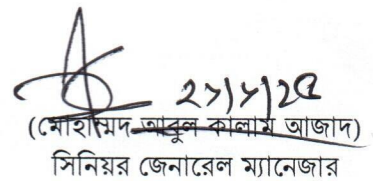 ২১/১/২৫
(মোহাম্মদ আবুল কালাম আজাদ)
সিনিয়র জেনারেল ম্যানেজার